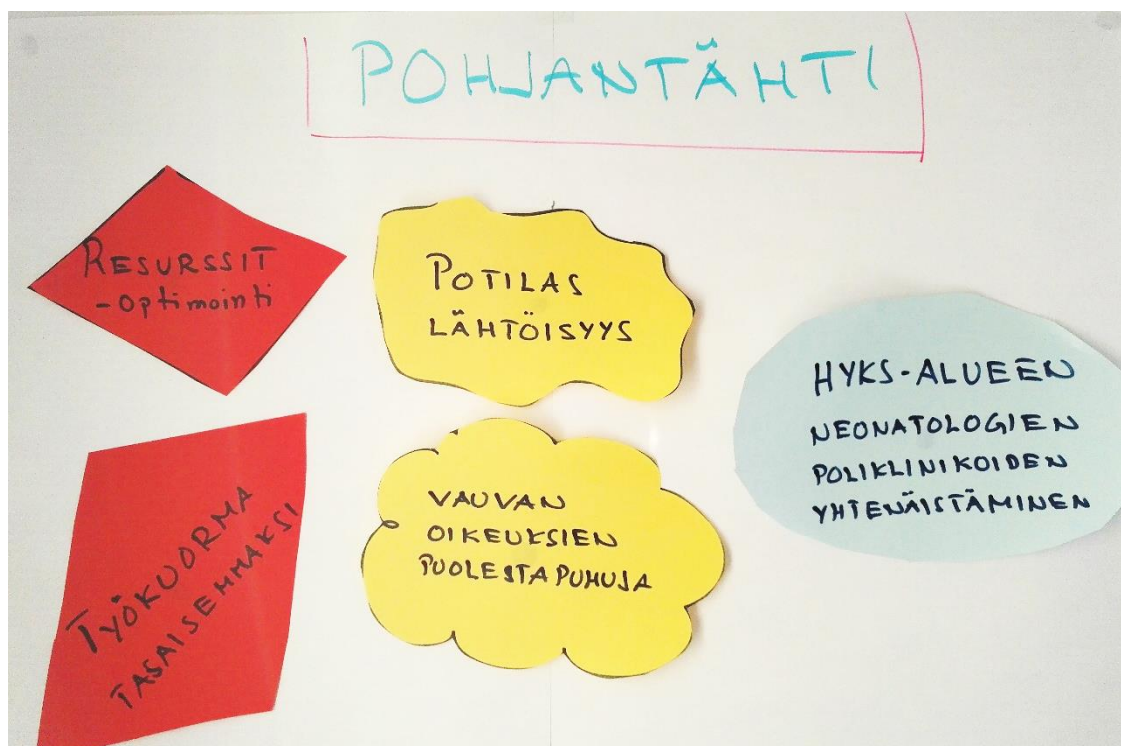 POHJANTÄHTI
RESURSSIT
-optimointi
POTILAS
LÄHTÖISYYS
HYKS-ALUEEN
NEONATOLOGIEN
POLIKLINIKOIDEN
YHTENÄISTÄMINEN
TYÖKUORMA
TASAISEMMAKSI
VAUVAN
OIKEUKSIEN
PUOLESTAPUHUJA